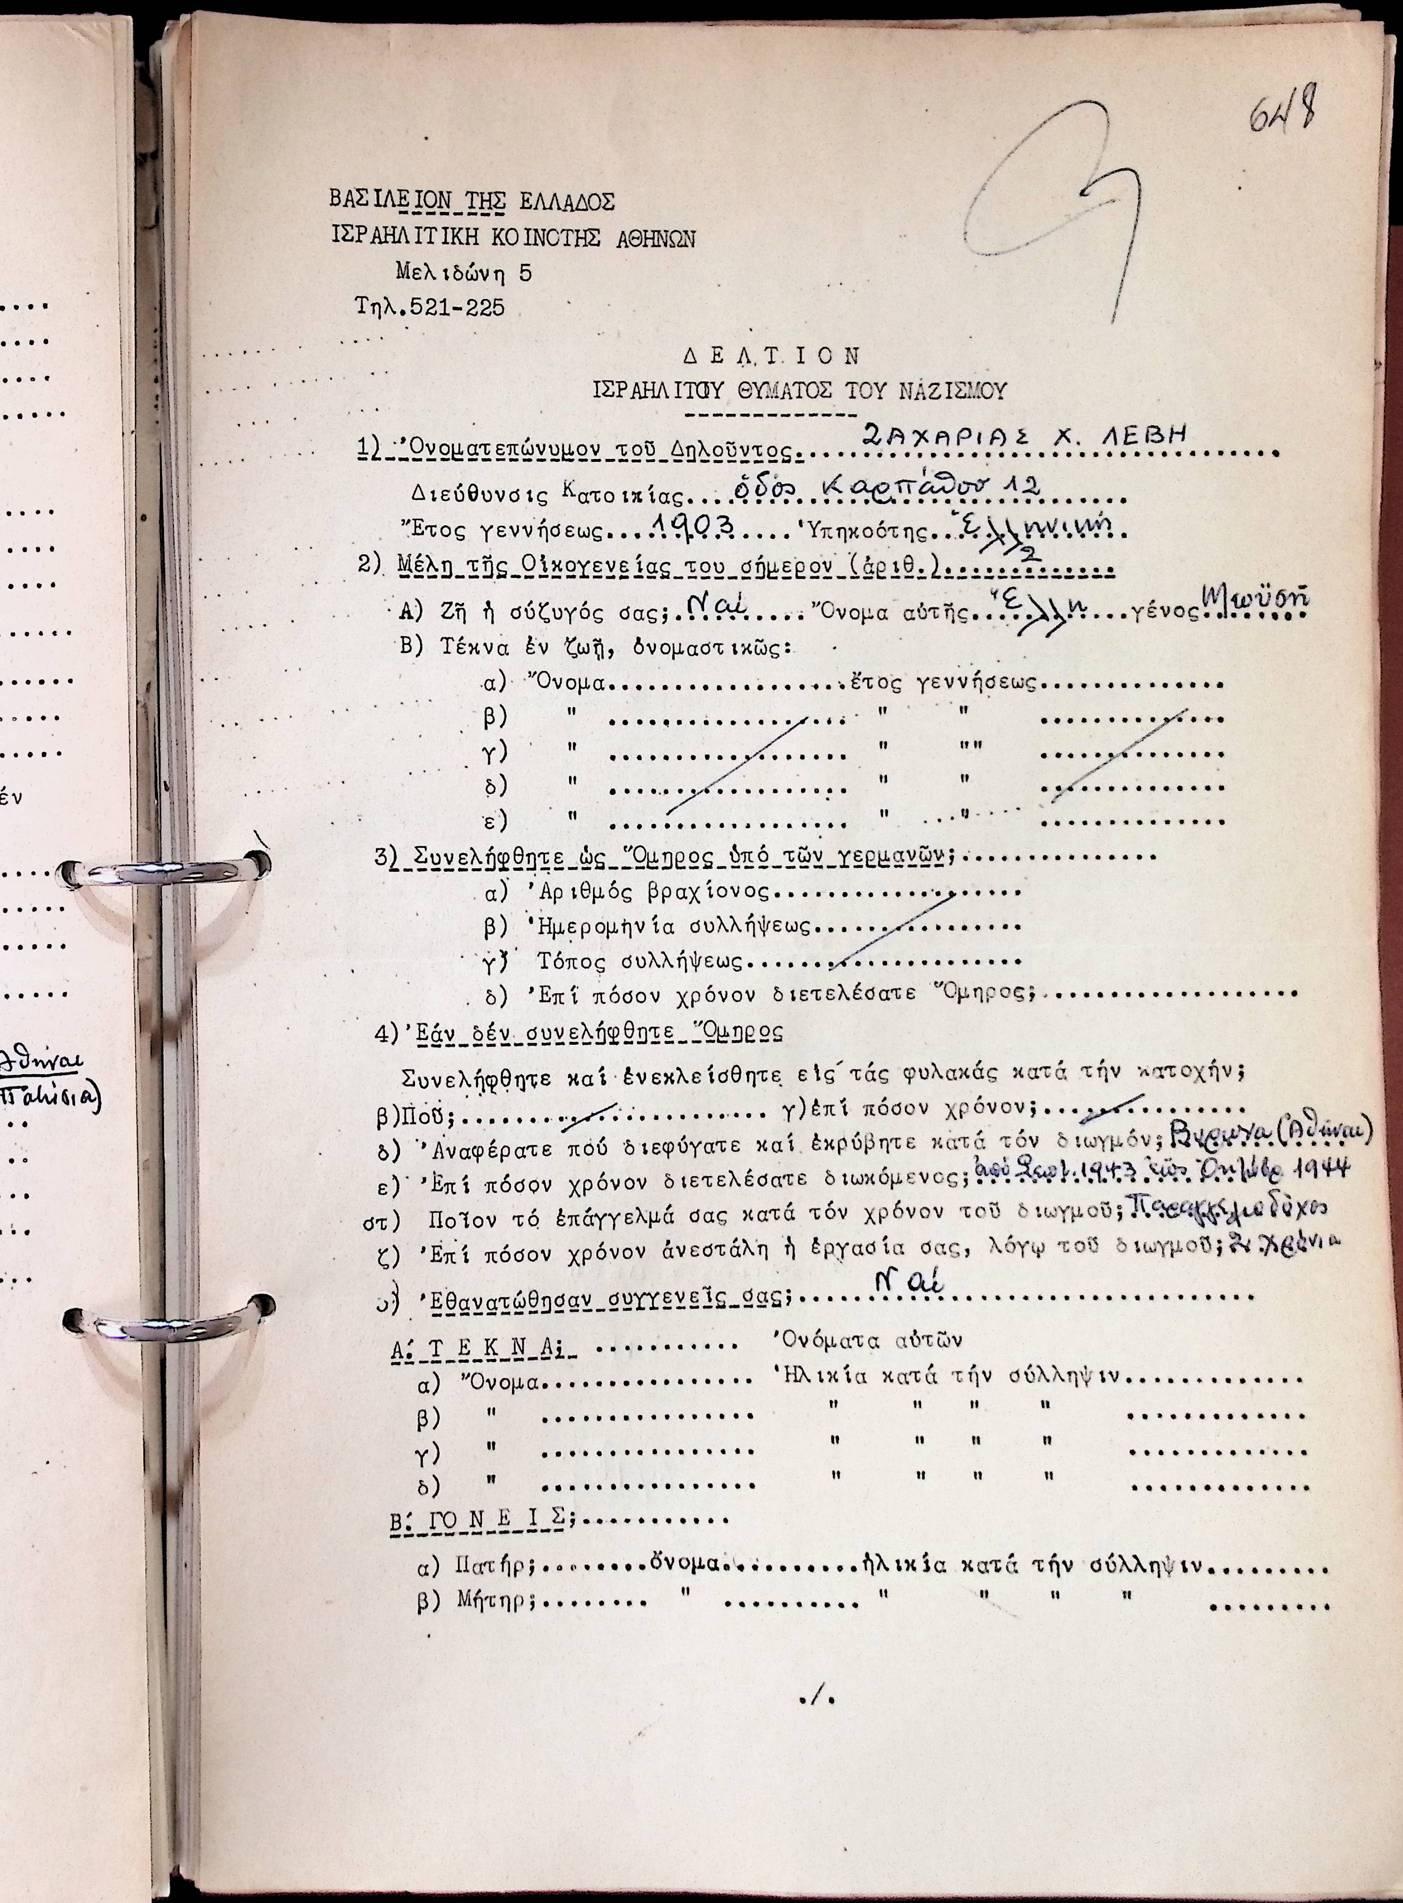 648
ΒΑΣΙΛΕΙΟΝ ΤΗΣ ΕΛΛΑΔΟΣ
ΙΣΡΑΗΛΙΤΙΚΗ ΚΟΙΝΟΤΗΣ ΑΘΗΝΩΝ
Μελιδώνη 5
Τηλ.521-225
Δ Ε Λ Τ Ι Ο Ν
ΙΣΡΑΗΛΙΤΟΥ ΘΥΜΑΤΟΣ ΤΟΥ ΝΑΖΙΣΜΟΥ
1) Ὀνοματεπώνυμον τοῦ Δηλοῦντος... ΖΑΧΑΡΙΑΣ Χ. ΛΕΒΗ
Διεύθυνσις Κατοικίας.... ὁδὸς Καρπάθου 12
Ἔτος γεννήσεως....1903..... Ὑπηκοότης. Ἑλληνική
2) Μέλη τῆς Οἰκογενείας του σήμερον (ἀριθ.)....2....
Α) Ζῆ ἡ σύζυγός σας; Ναί ..... Ὄνομα αὐτῆς. Ἕλλη ....γένος Μωϋσῆ
Β) Τέκνα ἐν ζωῇ, ὀνομαστικῶς:
α) Ὄνομα....................ἔτος γεννήσεως..............
β) " .................... " " ..............
γ) " .................... " "" ..............
δ) " .................... " " ..............
ε) " .................... " " ..............
3) Συνελήφθητε ὡς Ὅμηρος ὑπό τῶν γερμανῶν;...............
α) Ἀριθμός βραχίονος....................
β) Ἡμερομηνία συλλήψεως.................
γ) Τόπος συλλήψεως......................
δ) Ἐπί πόσον χρόνον διετελέσατε Ὅμηρος;...................
4) Ἐάν δέν συνελήφθητε Ὅμηρος
Συνελήφθητε καί ἐνεκλείσθητε εἰς τάς φυλακάς κατά τήν κατοχήν;
β)Ποῦ;........................ γ)ἐπί πόσον χρόνον;................
δ) Ἀναφέρατε πού διεφύγατε καί ἐκρύβητε κατά τόν διωγμόν; Βύρωνα (Ἀθῆναι)
ε) Ἐπί πόσον χρόνον διετελέσατε διωκόμενος; ἀπὸ Σεπτ. 1943 ἕως Ὀκτώβρ 1944
στ) Ποῖον τό ἐπάγγελμά σας κατά τόν χρόνον τοῦ διωγμοῦ; Παραγγελιοδόχος
ζ) Ἐπί πόσον χρόνον ἀνεστάλη ἡ ἐργασία σας, λόγῳ τοῦ διωγμοῦ; 2 χρόνια
5) Ἐθανατώθησαν συγγενεῖς σας;...... Ναί ........................
Α: Τ Ε Κ Ν Α; ........... Ὀνόματα αὐτῶν
α) Ὄνομα................ Ἡλικία κατά τήν σύλληψιν.............
β) " ................ " " " " .............
γ) " ................ " " " " .............
δ) " ................ " " " " .............
Β: ΓΟ Ν Ε Ι Σ;...........
α) Πατήρ;........ὄνομα...........ἡλικία κατά τήν σύλληψιν.........
β) Μήτηρ;........ " .......... " " " " .........
./.
έν
Ἀθῆναι
(Πατήσια)